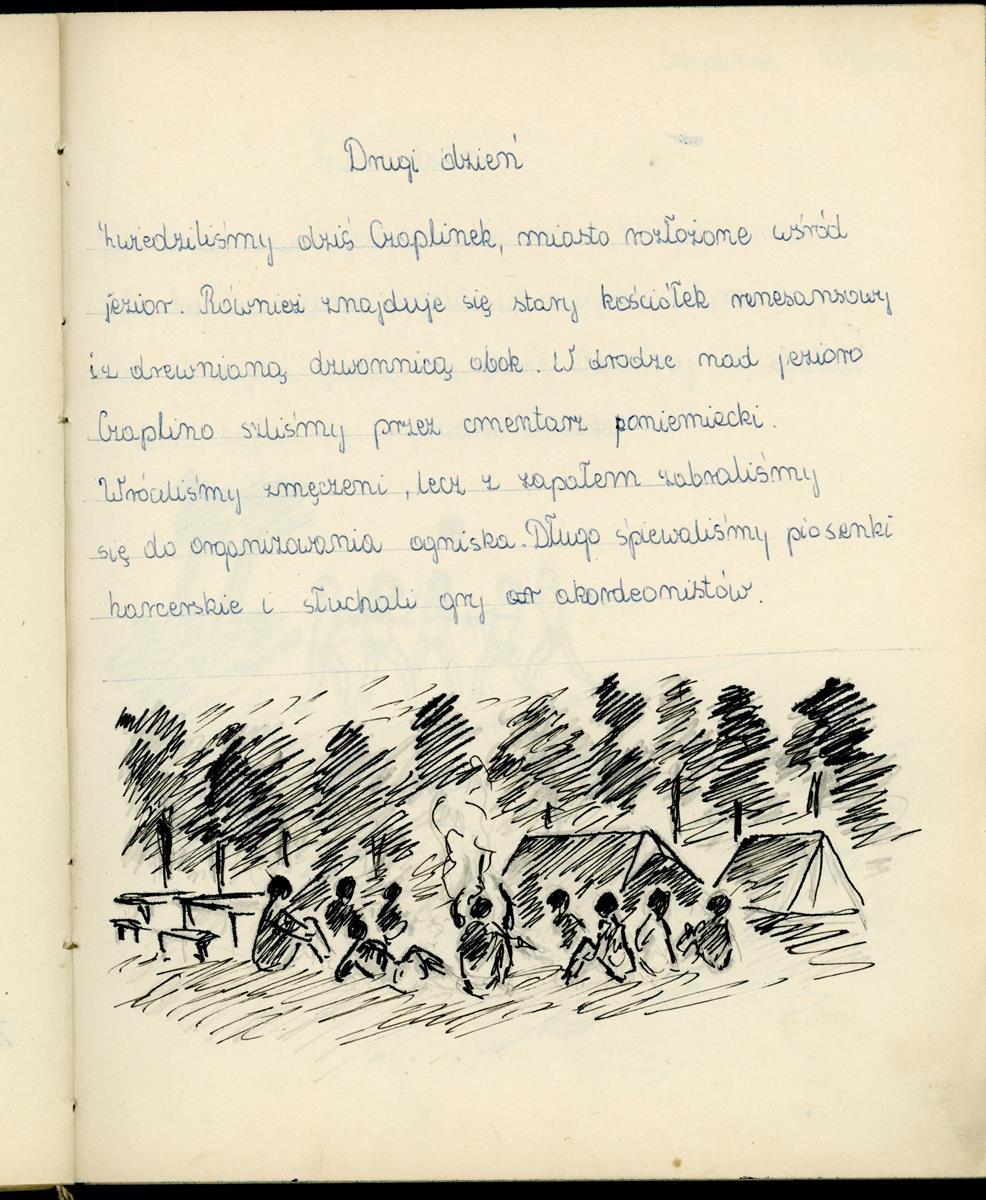 Drugi dzień
Zwiedziliśmy dziś Czaplinek, miasto rozłożone wśród
jezior. Również znajduje się stary kościółek renesansowy
i z drewnianą dzwonnicą obok. W drodze nad jezioro
Czaplino szliśmy przez cmentarz poniemiecki.
Wróciliśmy zmęczeni, lecz z zapałem zabraliśmy
się do organizowania ogniska. Długo śpiewaliśmy piosenki
harcerskie i słuchali gry akordeonistów.